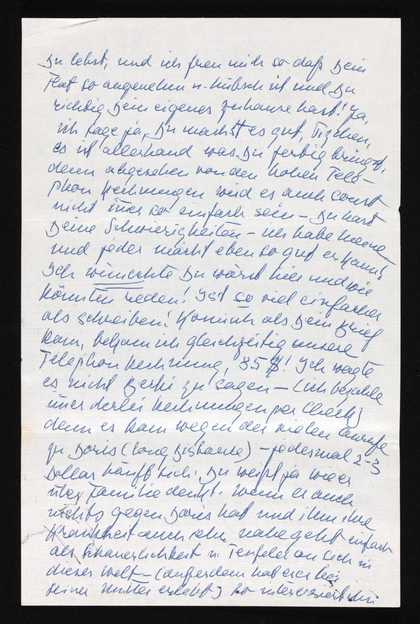 Du lebst, und ich freu mich so daß Dein
Flat so angenehm u. hübsch ist und Du
richtig Dein eigenes zuhause hast! Ja,
ich sage ja, Du machst es gut,
es ist allerhand was Du fertig bringst,
denn abgesehen von den hohen Tele-
phon Rechnungen wird es auch sonst
nicht immer so einfach sein – Du hast
Deine Schwierigkeiten – ich habe meine
und jeder macht eben so gut er kann!
Ich wünschte Du wärst hier und wir
könnten reden! Ist so viel einfacher
als schreiben! Komisch als Dein Brief
kam, bekam ich gleichzeitig unsere
Telephon Rechnung, 85 $! Ich wagte
es nicht zu sagen – (ich bezahle
immer derlei Rechnungen per Check)
denn es kam wegen der vielen Anrufe
zu Doris (Long Distance) – jedesmal 2-3
Dollar häuft sich. Du weißt ja wie er
über Familie denkt. Wenn er auch
nichts gegen Doris hat und ihm ihre
Krankheit auch sehr nahe geht einfach
als Schauerlichkeit u. Teufelei an sich in
dieser Welt – (außerdem hat er es bei
seiner Mutter erlebt) so